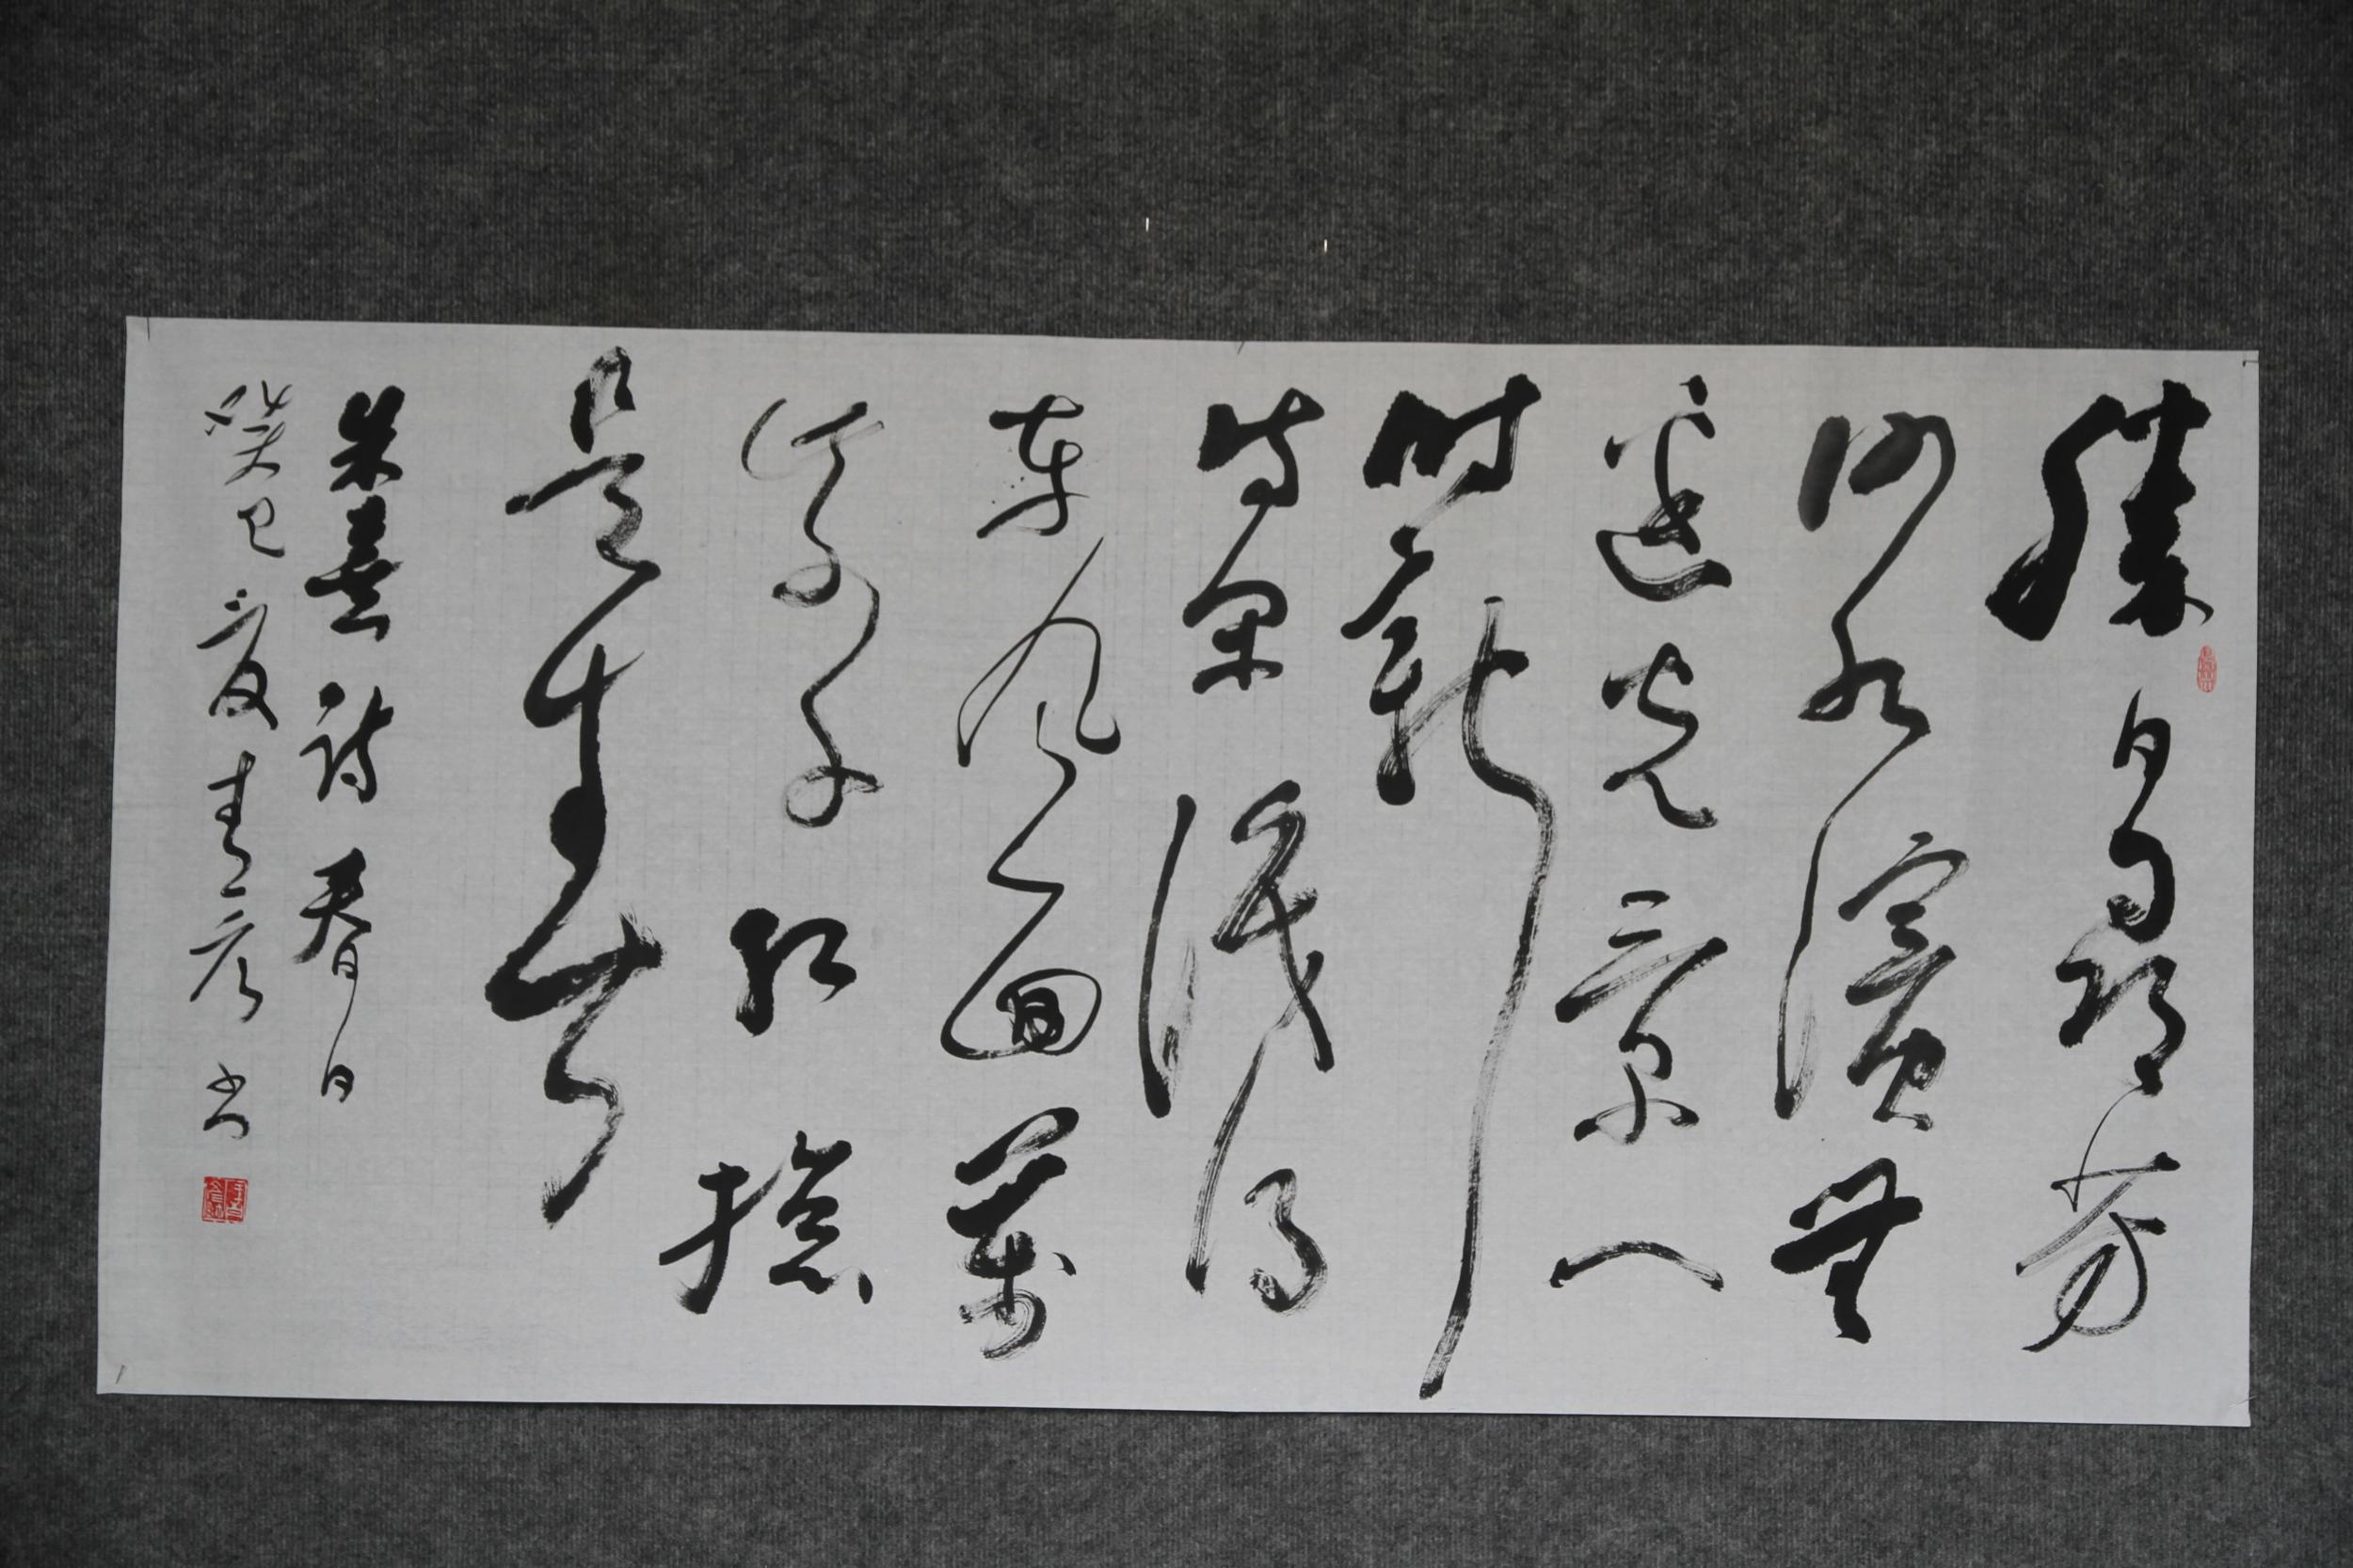 勝日尋芳
泗水濱無
邊光景一
時新
等閒識得
東風面萬
紫千紅總
是春
朱熹詩春日
癸巳夏青彦书